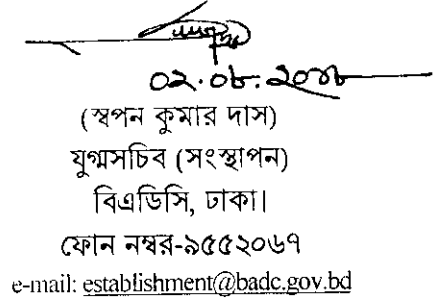 ০২.০৮.২০১৮
(স্বপন কুমার দাস)
যুগ্মসচিব (সংস্থাপন)
বিএডিসি, ঢাকা।
ফোন নম্বর-৯৫৫২০৬৭
e-mail: establishment@badc.gov.bd